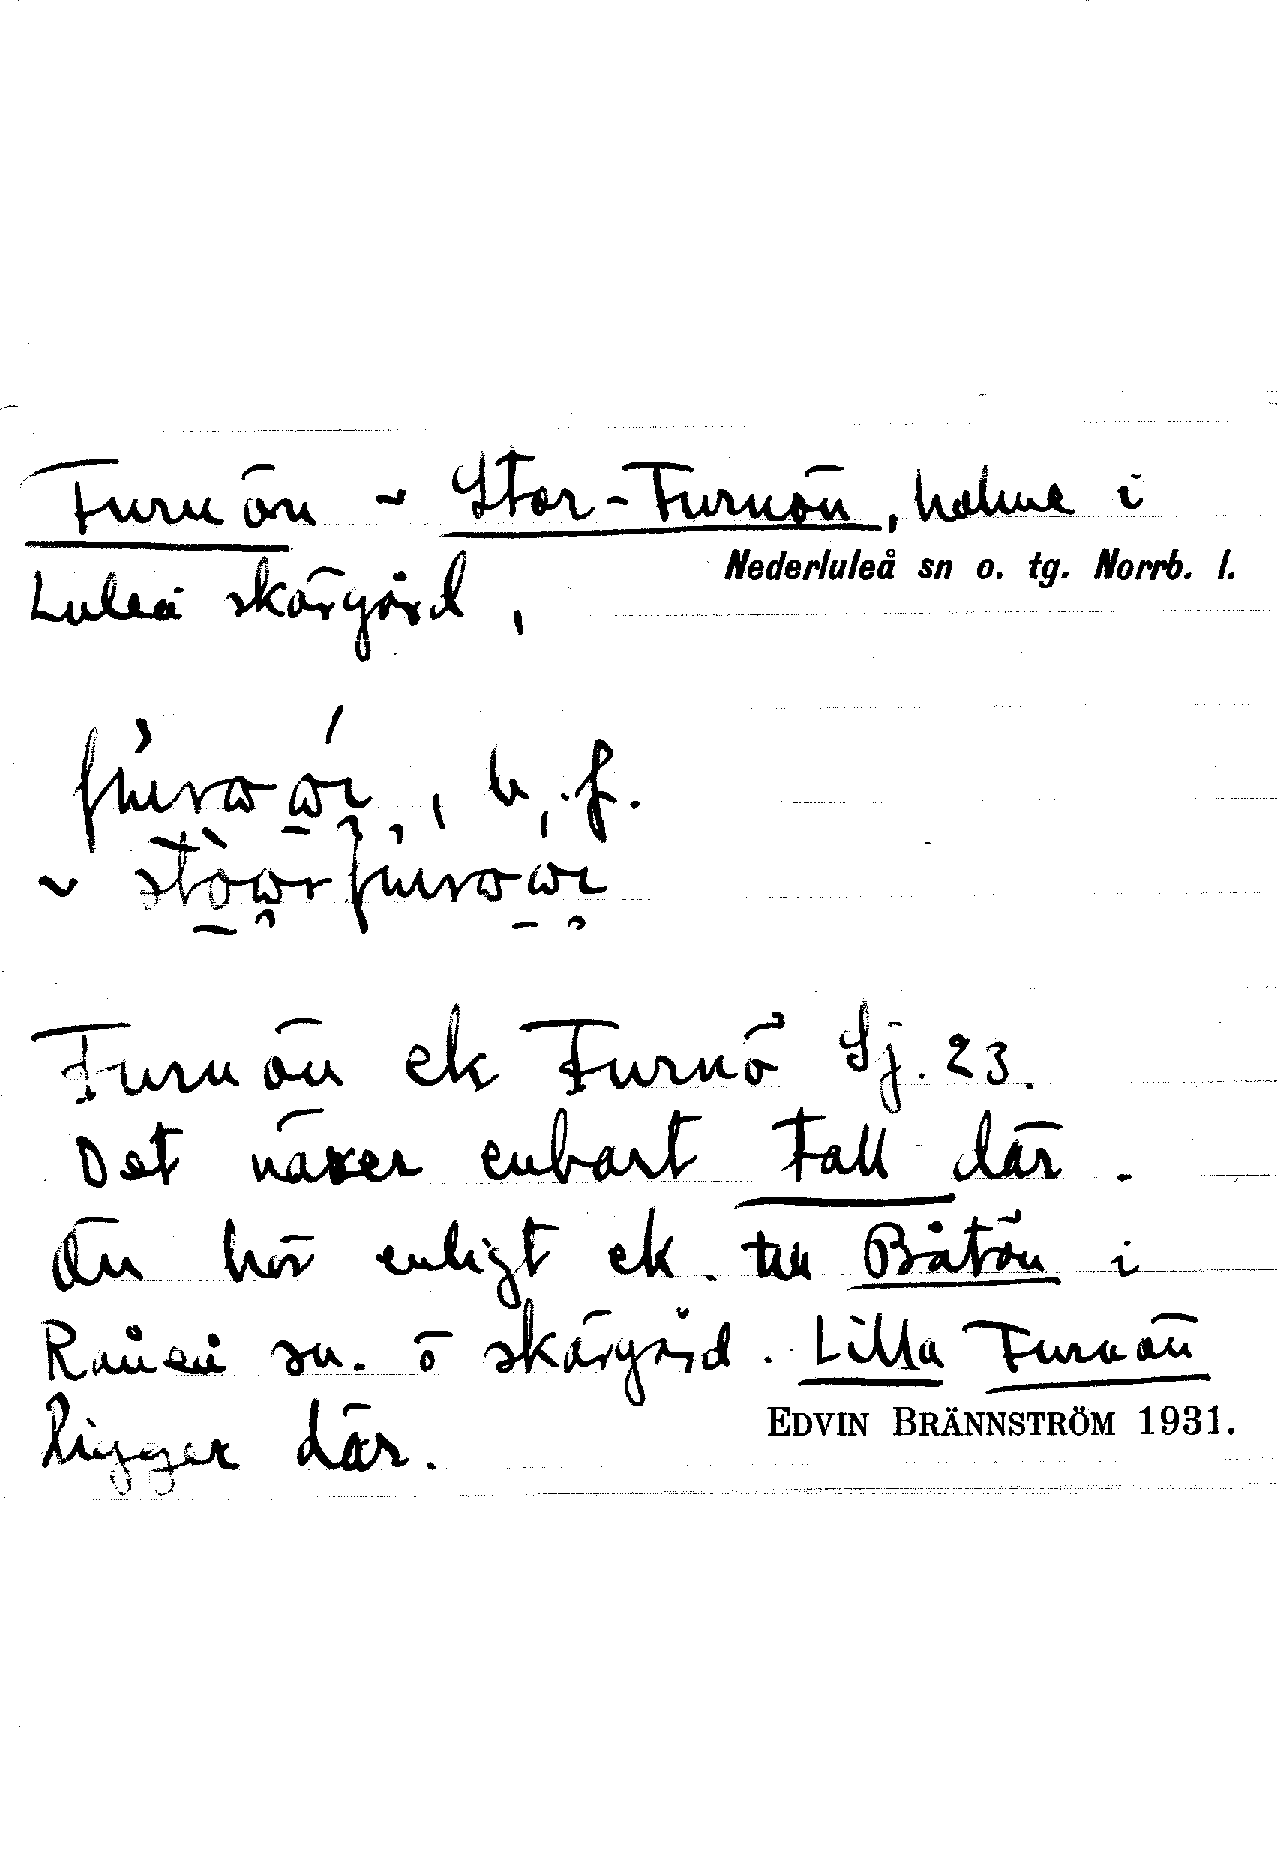 Furuön ~ Stor-Furuön, holme i
Nederluleå sn o. tg. Norrb. l.
Luleå skärgård,
, b. f.
~
Furuön ek Furuö Sj. 23.
Det växer enbart Tall där.
Ön hör enligt ek. till Båtön i
Råneå sn. o skärgård. Lilla Furuön
ligger där.
EDVIN BRÄNNSTRÖM 1931.